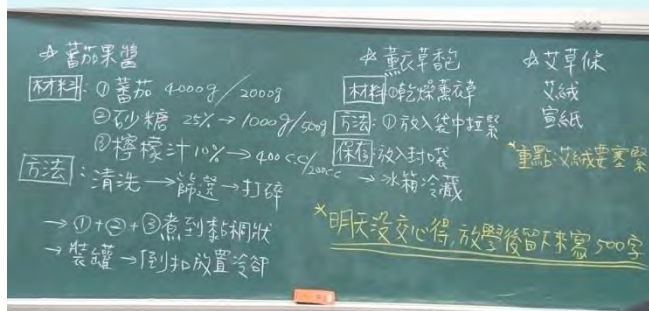 ☆蕃茄果醬
材料：①蕃茄 4000g/2000g
②砂糖 25%→1000g/500g
③檸檬汁10%→400c.c/200cc
方法：清洗→篩選→打碎
→①+②+③煮到黏稠狀
→裝罐→倒扣放置冷卻
☆薰衣草香包
材料：①乾燥薰衣草
方法：①放入袋中拉緊
保存：放入封口袋
→冰箱冷藏
☆艾草條
艾絨
宣紙
*重點：艾絨要塞緊
*明天沒交心得，放學後留下來寫500字